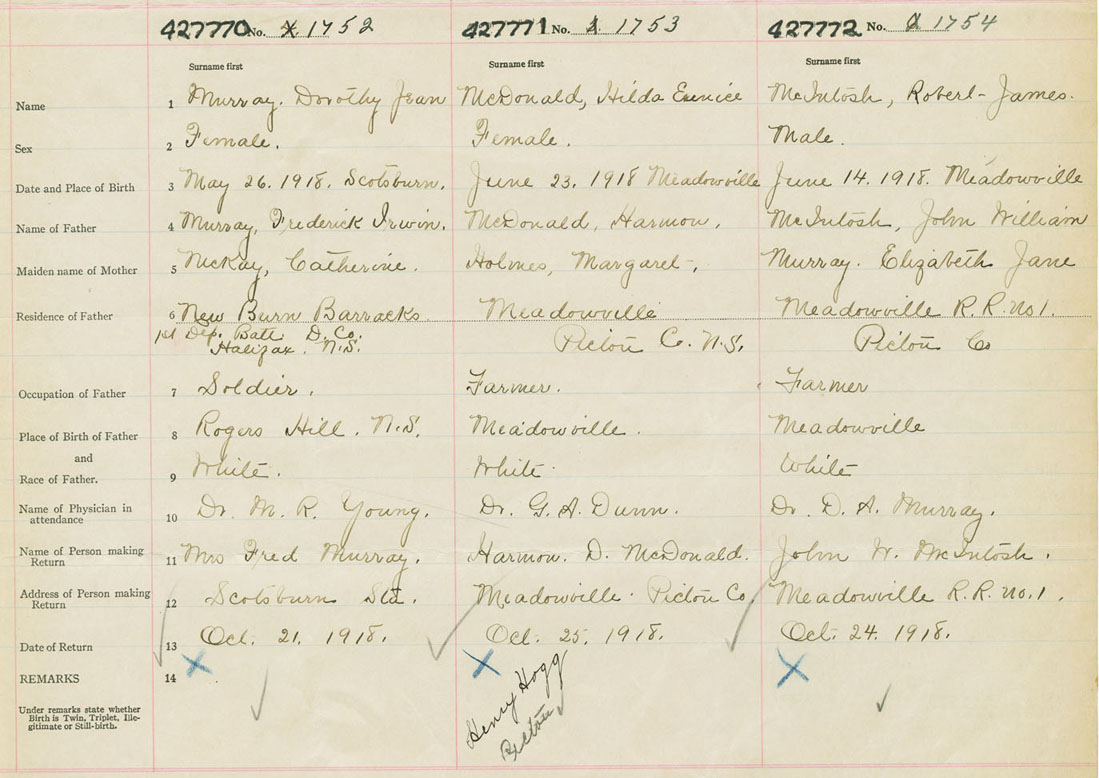 427770 No. X 1752 427771 No. 1 1753 427772 No. 1754
Surname first Surname first Surname first
Name 1 Murray, Dorothy Jean McDonald, Hilda Eunice McIntosh, Robert James.
Sex 2 Female. Female. Male.
Date and Place of Birth 3 May 26. 1918. Scotsburn. June 23. 1918 Meadowville June 14. 1918. Meadowville
Name of Father 4 Murray, Frederick Irwin. McDonald, Harmon, McIntosh, John William
Maiden name of Mother 5 McKay, Catherine. Holmes, Margaret, Murray. Elizabeth Jane
Residence of Father 6 New Burn Barracks Meadowville Meadowville R.R. No 1.
1st Dep. Batt D. Co. Pictou Co. N.S. Pictou Co
Halifax. N.S.
Occupation of Father 7 Soldier. Farmer. Farmer
Place of Birth of Father 8 Rogers Hill. N.S. Meadowville. Meadowville
and
Race of Father. 9 White. White. White
Name of Physician in
attendance 10 Dr. M. R. Young. Dr. G. A. Dunn. Dr. D. A. Murray.
Name of Person making
Return 11 Mrs Fred Murray. Harmon. D. McDonald. John W. McIntosh.
Address of Person making
Return 12 Scotsburn Sta. Meadowville. Pictou Co. Meadowville R.R. No. 1.
Date of Return 13 Oct. 21. 1918. Oct. 25. 1918. Oct. 24. 1918.
REMARKS 14
Henry Hogg
Pictou
Under remarks state whether
Birth is Twin, Triplet, Ille-
gitimate or Still-birth.